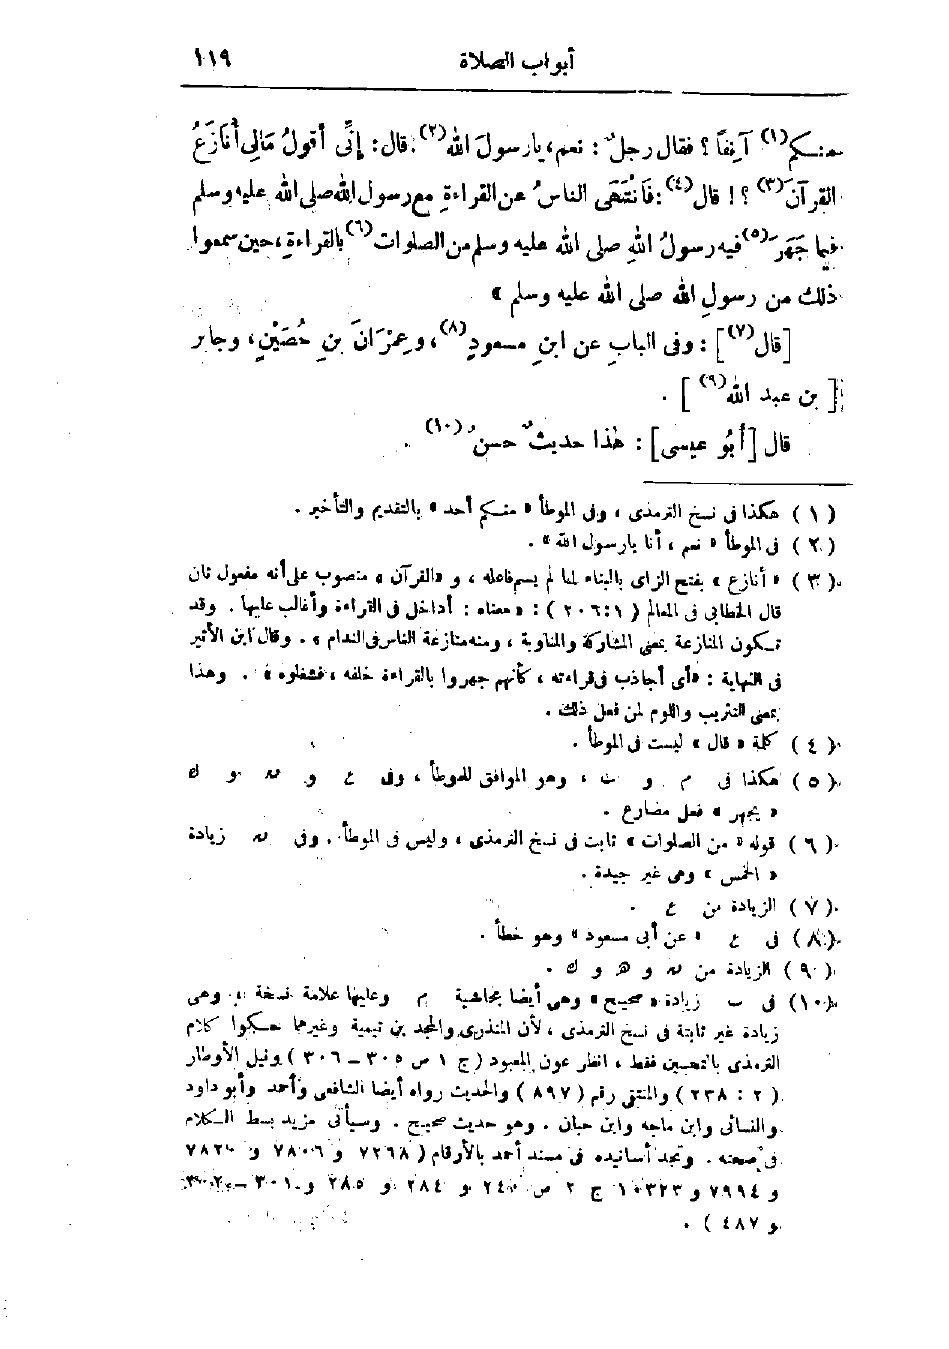 أبواب الصلاة ١١٩
منكم(١) آنِفًا ؟ فقال رجلٌ : نعم، يا رسولَ الله(٢). قال : إِنِّى أقولُ مَالِى أُنَازَعُ
القرآنَ(٣) ؟! قال(٤) : فَانْتَهَى الناسُ عن القراءةِ مع رسول الله صلى الله عليه وسلم
فيما جَهَرَ(٥) فيه رسولُ اللهِ صلى الله عليه وسلم من الصلوات(٦) بالقراءةِ، حين سمعوا
ذلك من رسولِ الله صلى الله عليه وسلم »
[قال(٧)] : وفى البابِ عن ابنِ مسعودٍ(٨)، وعِمْرَانَ بنِ حُصَيْنٍ، وجابر
[بن عبد الله(٩)] .
قال [أبُو عيسى] : هذا حديثٌ حسنٌ(١٠) .
(١) هكذا فى نسخ الترمذى ، وفى الموطأ « منكم أحد » بالتقديم والتأخير .
(٢) فى الموطأ « نعم ، أنا يا رسول الله » .
(٣) « أنازع » بفتح الزاى بالبناء لما لم يسم فاعله ، و « القرآن » منصوب على أنه مفعول ثان
قال الخطابى فى المعالم ( ١ : ٢٠٦ ) : « معناه : أداخل فى القراءة وأغالب عليها . وقد
تكون المنازعة بمعنى المشاركة والمناوبة ، ومنه منازعة الناس فى الندام » . وقال ابن الأثير
فى النهاية : « أى أجاذب فى قراءته ، كأنهم جهروا بالقراءة خلفه ، فشغلوه » . وهذا
بمعنى التثريب واللوم لمن فعل ذلك .
(٤) كلمة « قال » ليست فى الموطأ .
(٥) هكذا فى م و ب ، وهو الموافق للموطأ ، وفى ع و نه و ك
« يجهر » فعل مضارع .
(٦) قوله « من الصلوات » ثابت فى نسخ الترمذى ، وليس فى الموطأ . وفى نه زيادة
« الخمس » وهى غير جيدة .
(٧) الزيادة من ع .
(٨) فى ع « عن أبى مسعود » وهو خطأ .
(٩) الزيادة من نه و ه و ك .
(١٠) فى ب زيادة « صحيح » وهى أيضا بحاشية م وعليها علامة نسخة ، وهى
زيادة غير ثابتة فى نسخ الترمذى ، لأن المنذرى والمجد بن تيمية وغيرهما حكوا كلام
الترمذى بالتحسين فقط ، انظر عون المعبود ( ج ١ ص ٣٠٥ – ٣٠٦ ) ونيل الأوطار
( ٢ : ٢٣٨ ) والمنتقى رقم ( ٨٩٧ ) والحديث رواه أيضا الشافعى وأحمد وأبو داود
والنسائى وابن ماجه وابن حبان . وهو حديث صحيح . وسيأتى مزيد بسط الكلام
فى صحته . وتجد أسانيده فى مسند أحمد بالأرقام ( ٧٢٦٨ و ٧٨٠٦ و ٧٨٢٠
و ٧٩٩٤ و ١٠٣٢٣ ج ٢ ص ٢٤٠ و ٢٨٤ و ٢٨٥ و ٣٠١ – ٣٠٢
و ٤٨٧ ) .